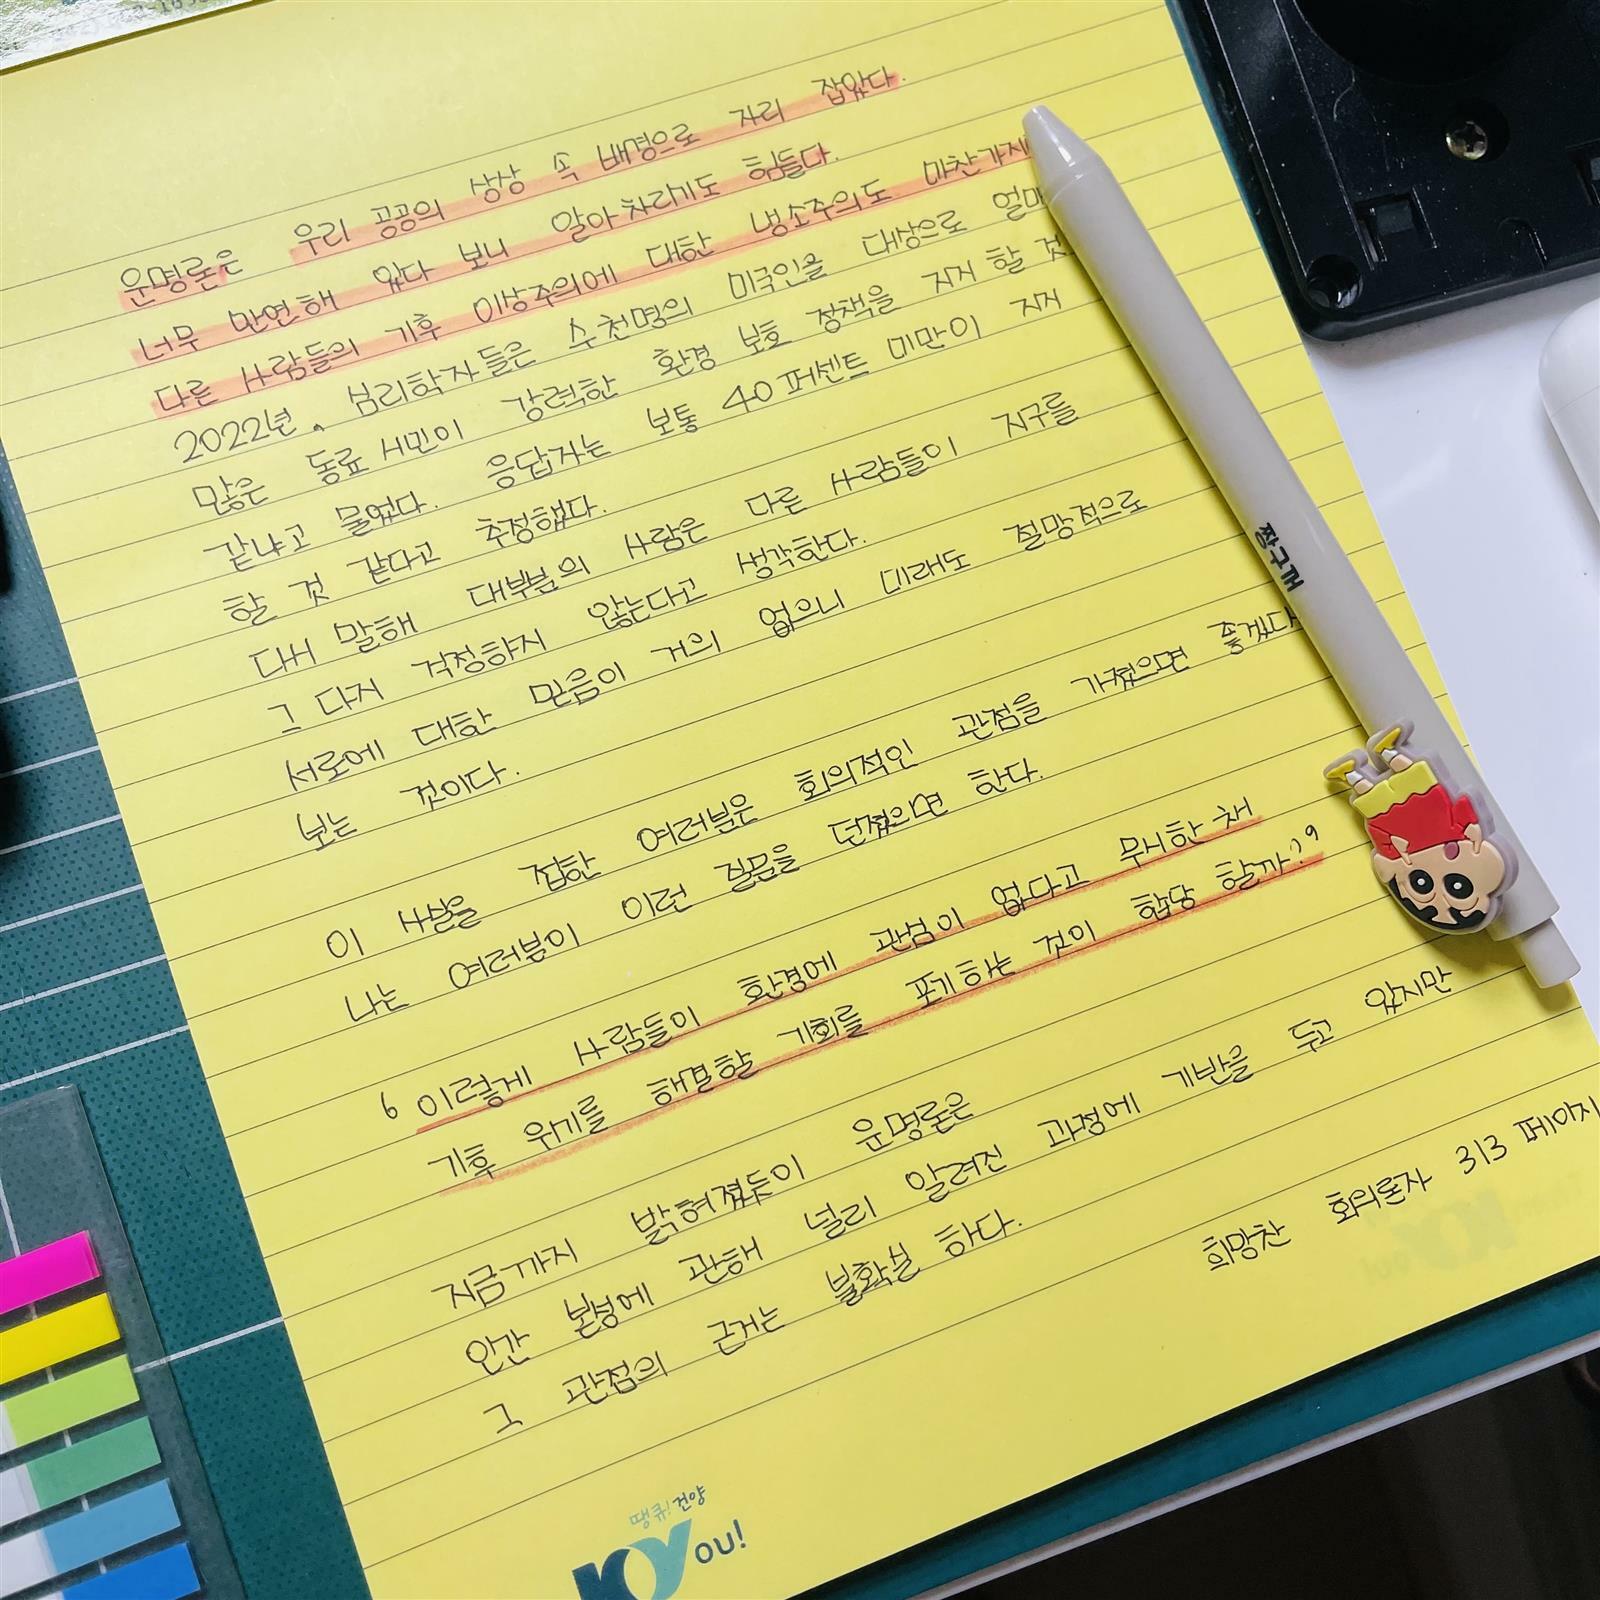 운명론은 우리 공공의 상상 속 배경으로 자리 잡았다.
너무 만연해 있다 보니 알아차리기도 힘들다.
다른 사람들의 기후 이상주의에 대한 냉소주의도 마찬가지
2022년, 심리학자들은 수천명의 미국인을 대상으로 얼마
많은 동료 시민이 강력한 환경 보호 정책을 지지 할 것
같냐고 물었다. 응답자는 보통 40퍼센트 미만이 지지
할 것 같다고 추정했다.
다시 말해 대부분의 사람은 다른 사람들이 지구를
그 다지 걱정하지 않는다고 생각한다.
서로에 대한 믿음이 거의 없으니 미래도 절망적으로
보는 것이다.
이 사실을 접한 여러분은 회의적인 관점을 가졌으면 좋겠다
나는 여러분이 이런 질문을 던졌으면 한다.
' 이렇게 사람들이 환경에 관심이 없다고 무시한 채
기후 위기를 해결할 기회를 포기하는 것이 합당 할까?'
지금까지 밝혀졌듯이 운명론은
인간 본성에 관해 널리 알려진 과정에 기반을 두고 있지만
그 관점의 근거는 불확실 하다.
희망찬 회의론자 313 페이지
땡큐! 건양
KYou!
짱구는